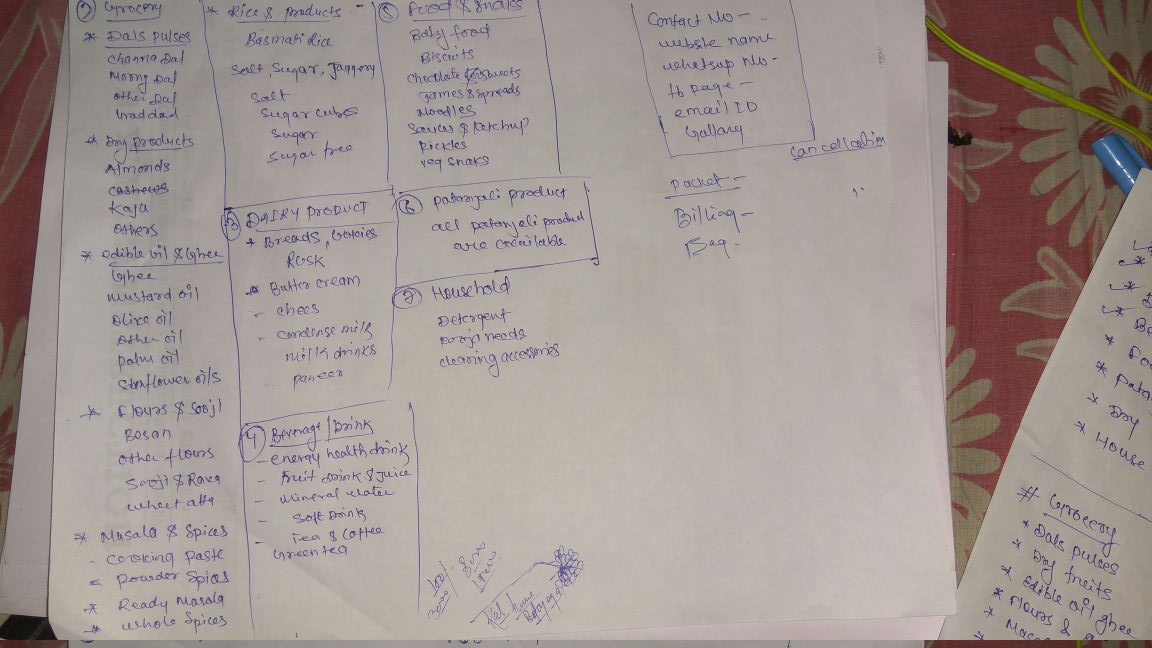 2 Grocery
* Dals pulses
channa Dal
Moong Dal
other Dal
Urad dad
* Dry products
Almonds
cashews
Kaju
others
* edible oil & Ghee
Ghee
mustard oil
Olive oil
other oil
palm oil
Sunflower oils
* Flours & Sooji
Besan
other flours
Sooji & Rava
wheet atta
* Masala & Spices
- cooking paste
Powder Spices
* Ready Masala
* whole Spices
* Rice & products -
Basmati Rice
Salt, Sugar, Jaggery
Salt
Sugar cube
Sugar
Sugar free
3 DAIRY PRODUCT
* Breads, Cookies
Rusk
* Butter cream
- chees
- condense milk
milk drinks
paneer
4 Beverage/Drink
- energy health drink
- fruit drink & juice
- mineral water
- Soft Drink
- Tea & Coffee
Green tea
5 Food & Snaks
Baby food
Biscuits
Chocolate & Sweets
James & spreads
Noodles
Sauces & Ketchup
Pickles
veg Snaks
6 patanjali product
all patanjali product
are available
7 Household
Detergent
pooja needs
cleaning accessories
Contact No -
website name
whatsup No -
fb page -
email ID
Gallary
Cancellation
packet -
Billing -
Bag -
* Dry
* House
# Grocery
* Dals pulses
* Dry fruits
* Edible oil ghee
* Flours &